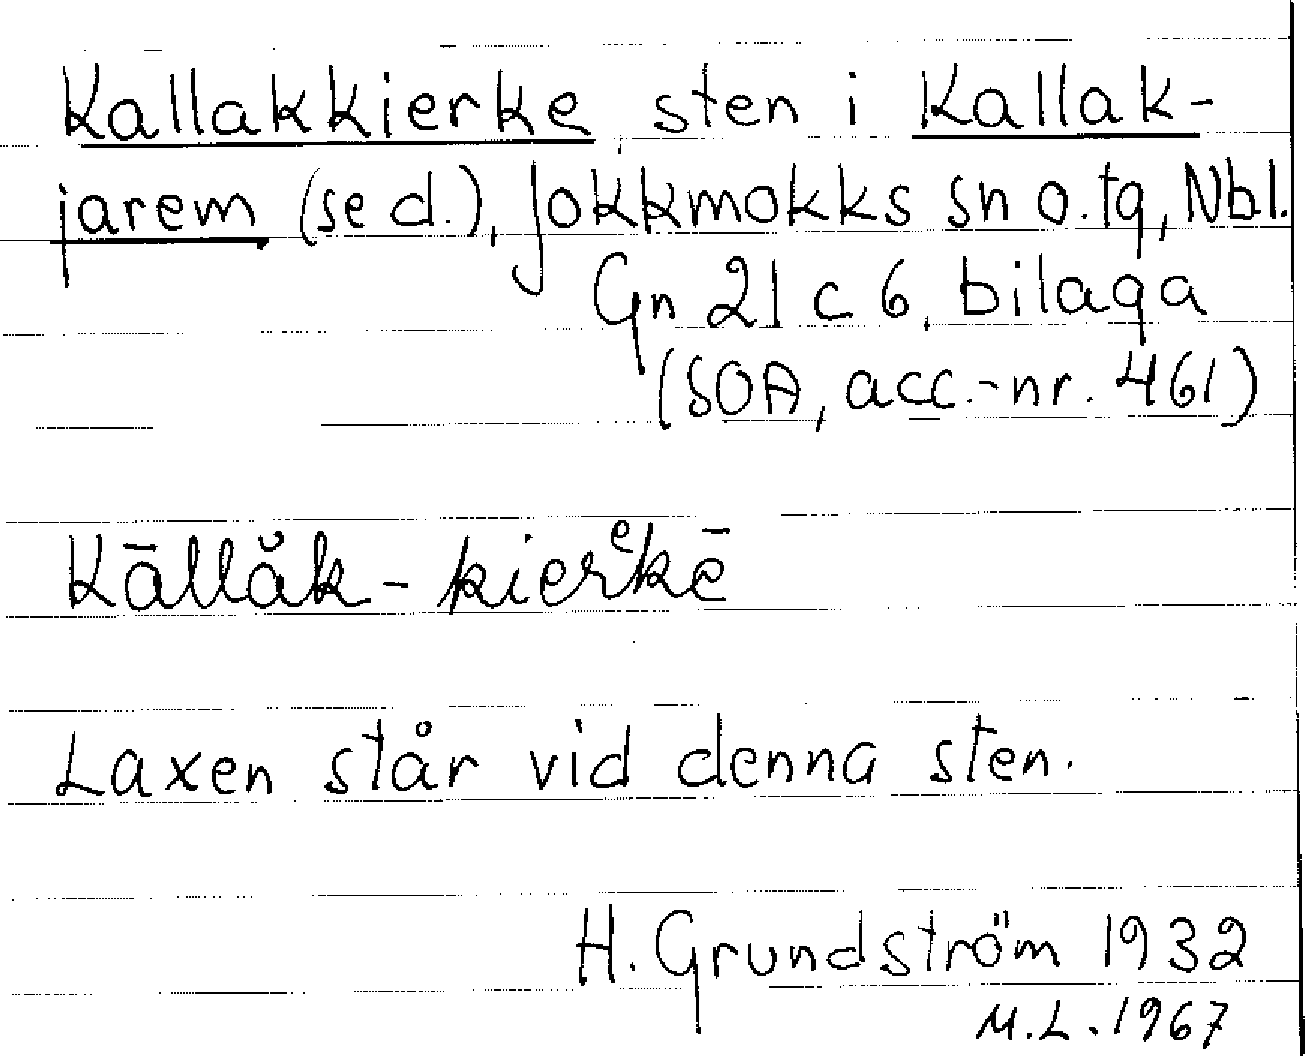 Kallakkierke, sten i Kallak-
jarem (se d.), Jokkmokks sn o. tg, Nbl.
Gn 21 c 6, bilaga
(SOA, acc.-nr. 461)
Kāllăk-kierᵉkē
Laxen står vid denna sten.
H. Grundström 1932
M.L. 1967